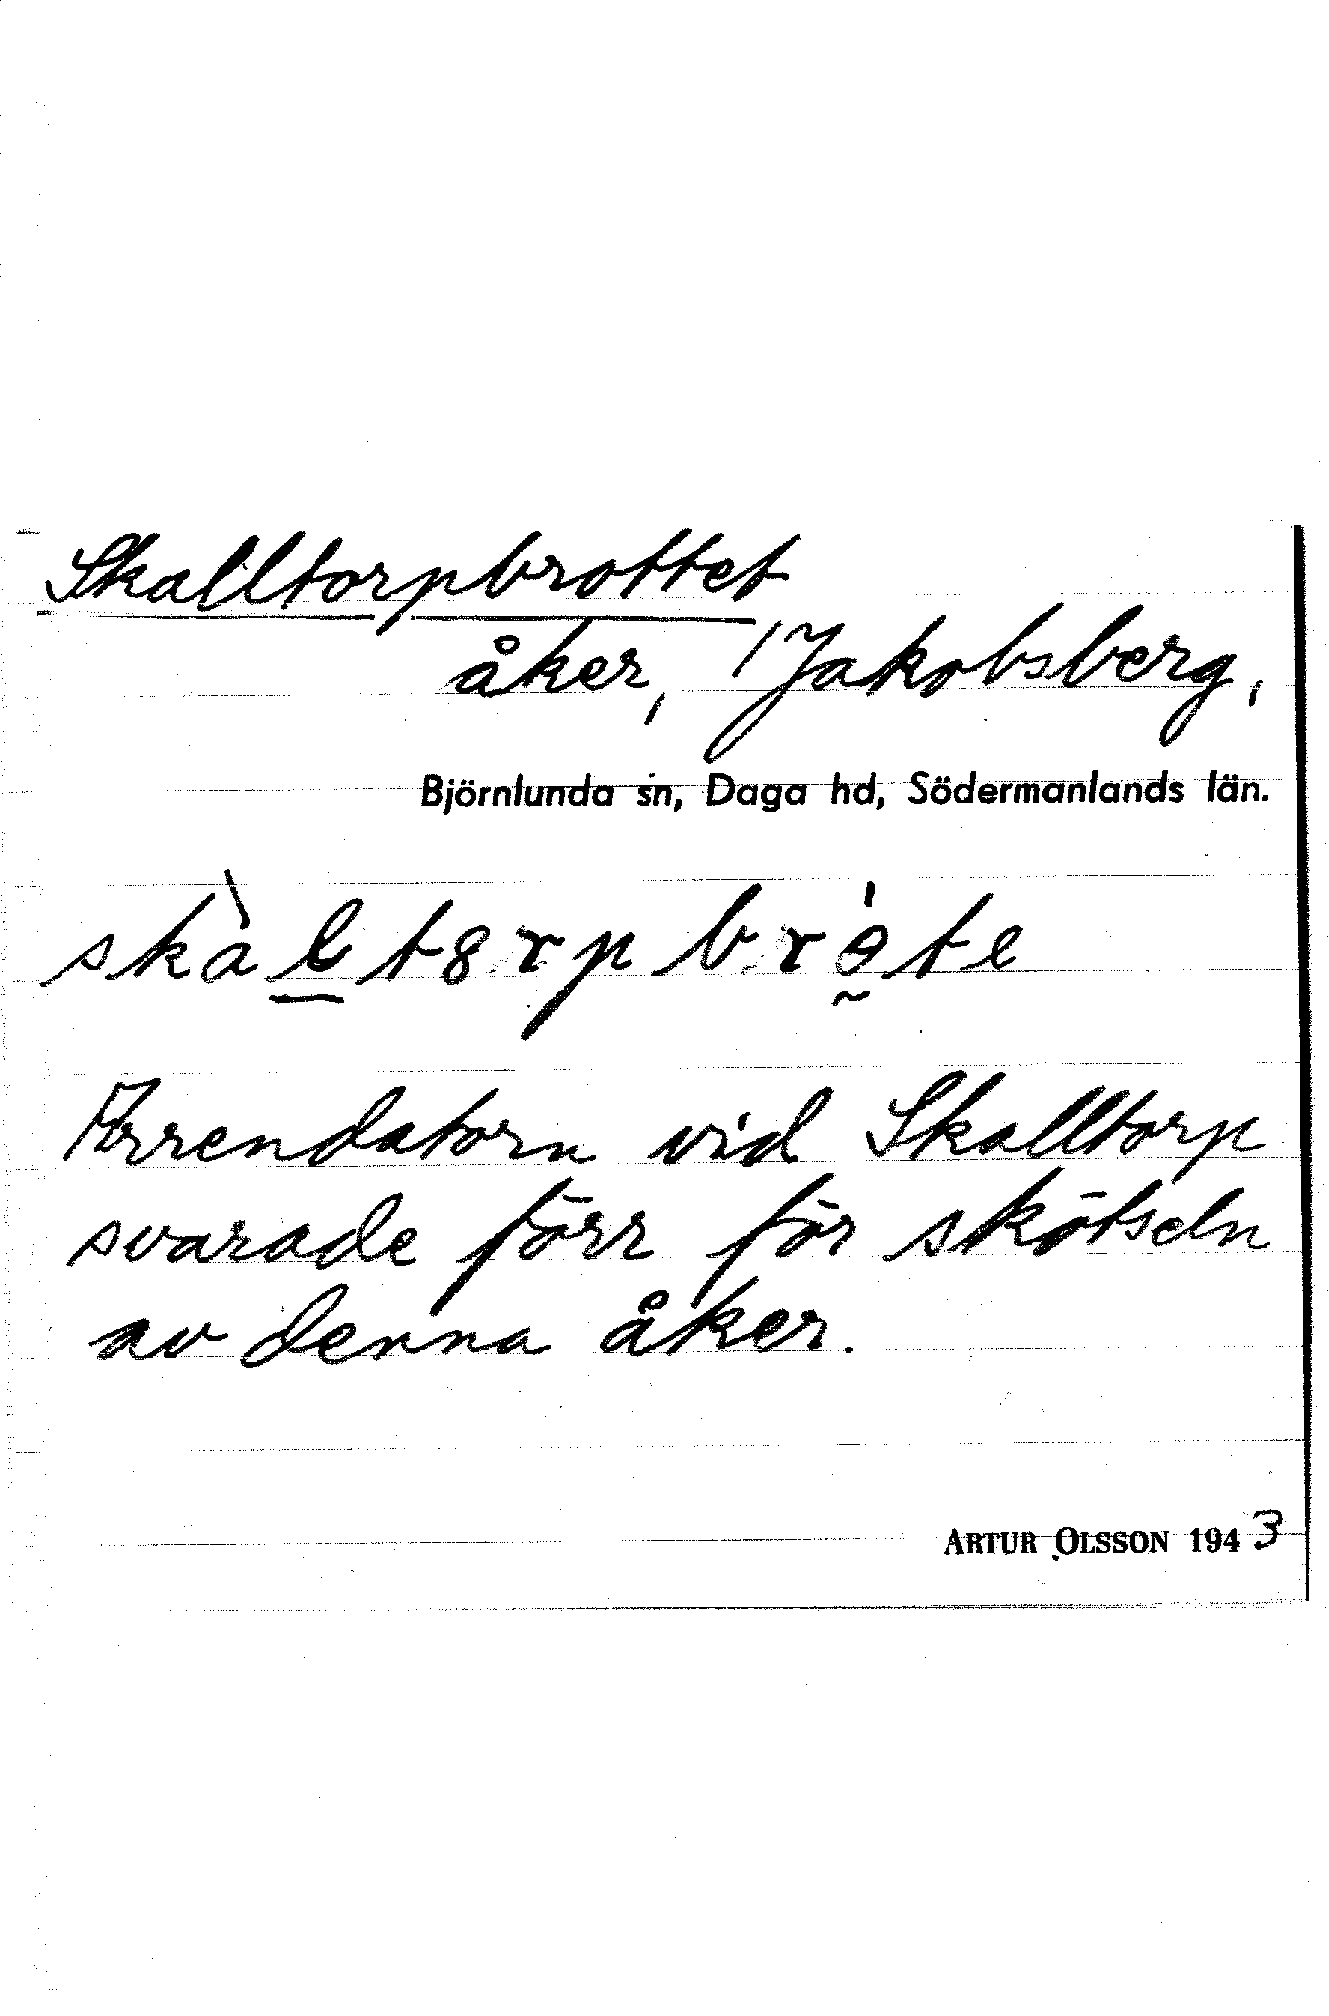 Skalltorpbrottet
åker, Jakobsberg,
Björnlunda sn, Daga hd, Södermanlands län.
Arrendatorn vid Skalltorp
svarade förr för skötseln
av denna åker.
ARTUR OLSSON 1943